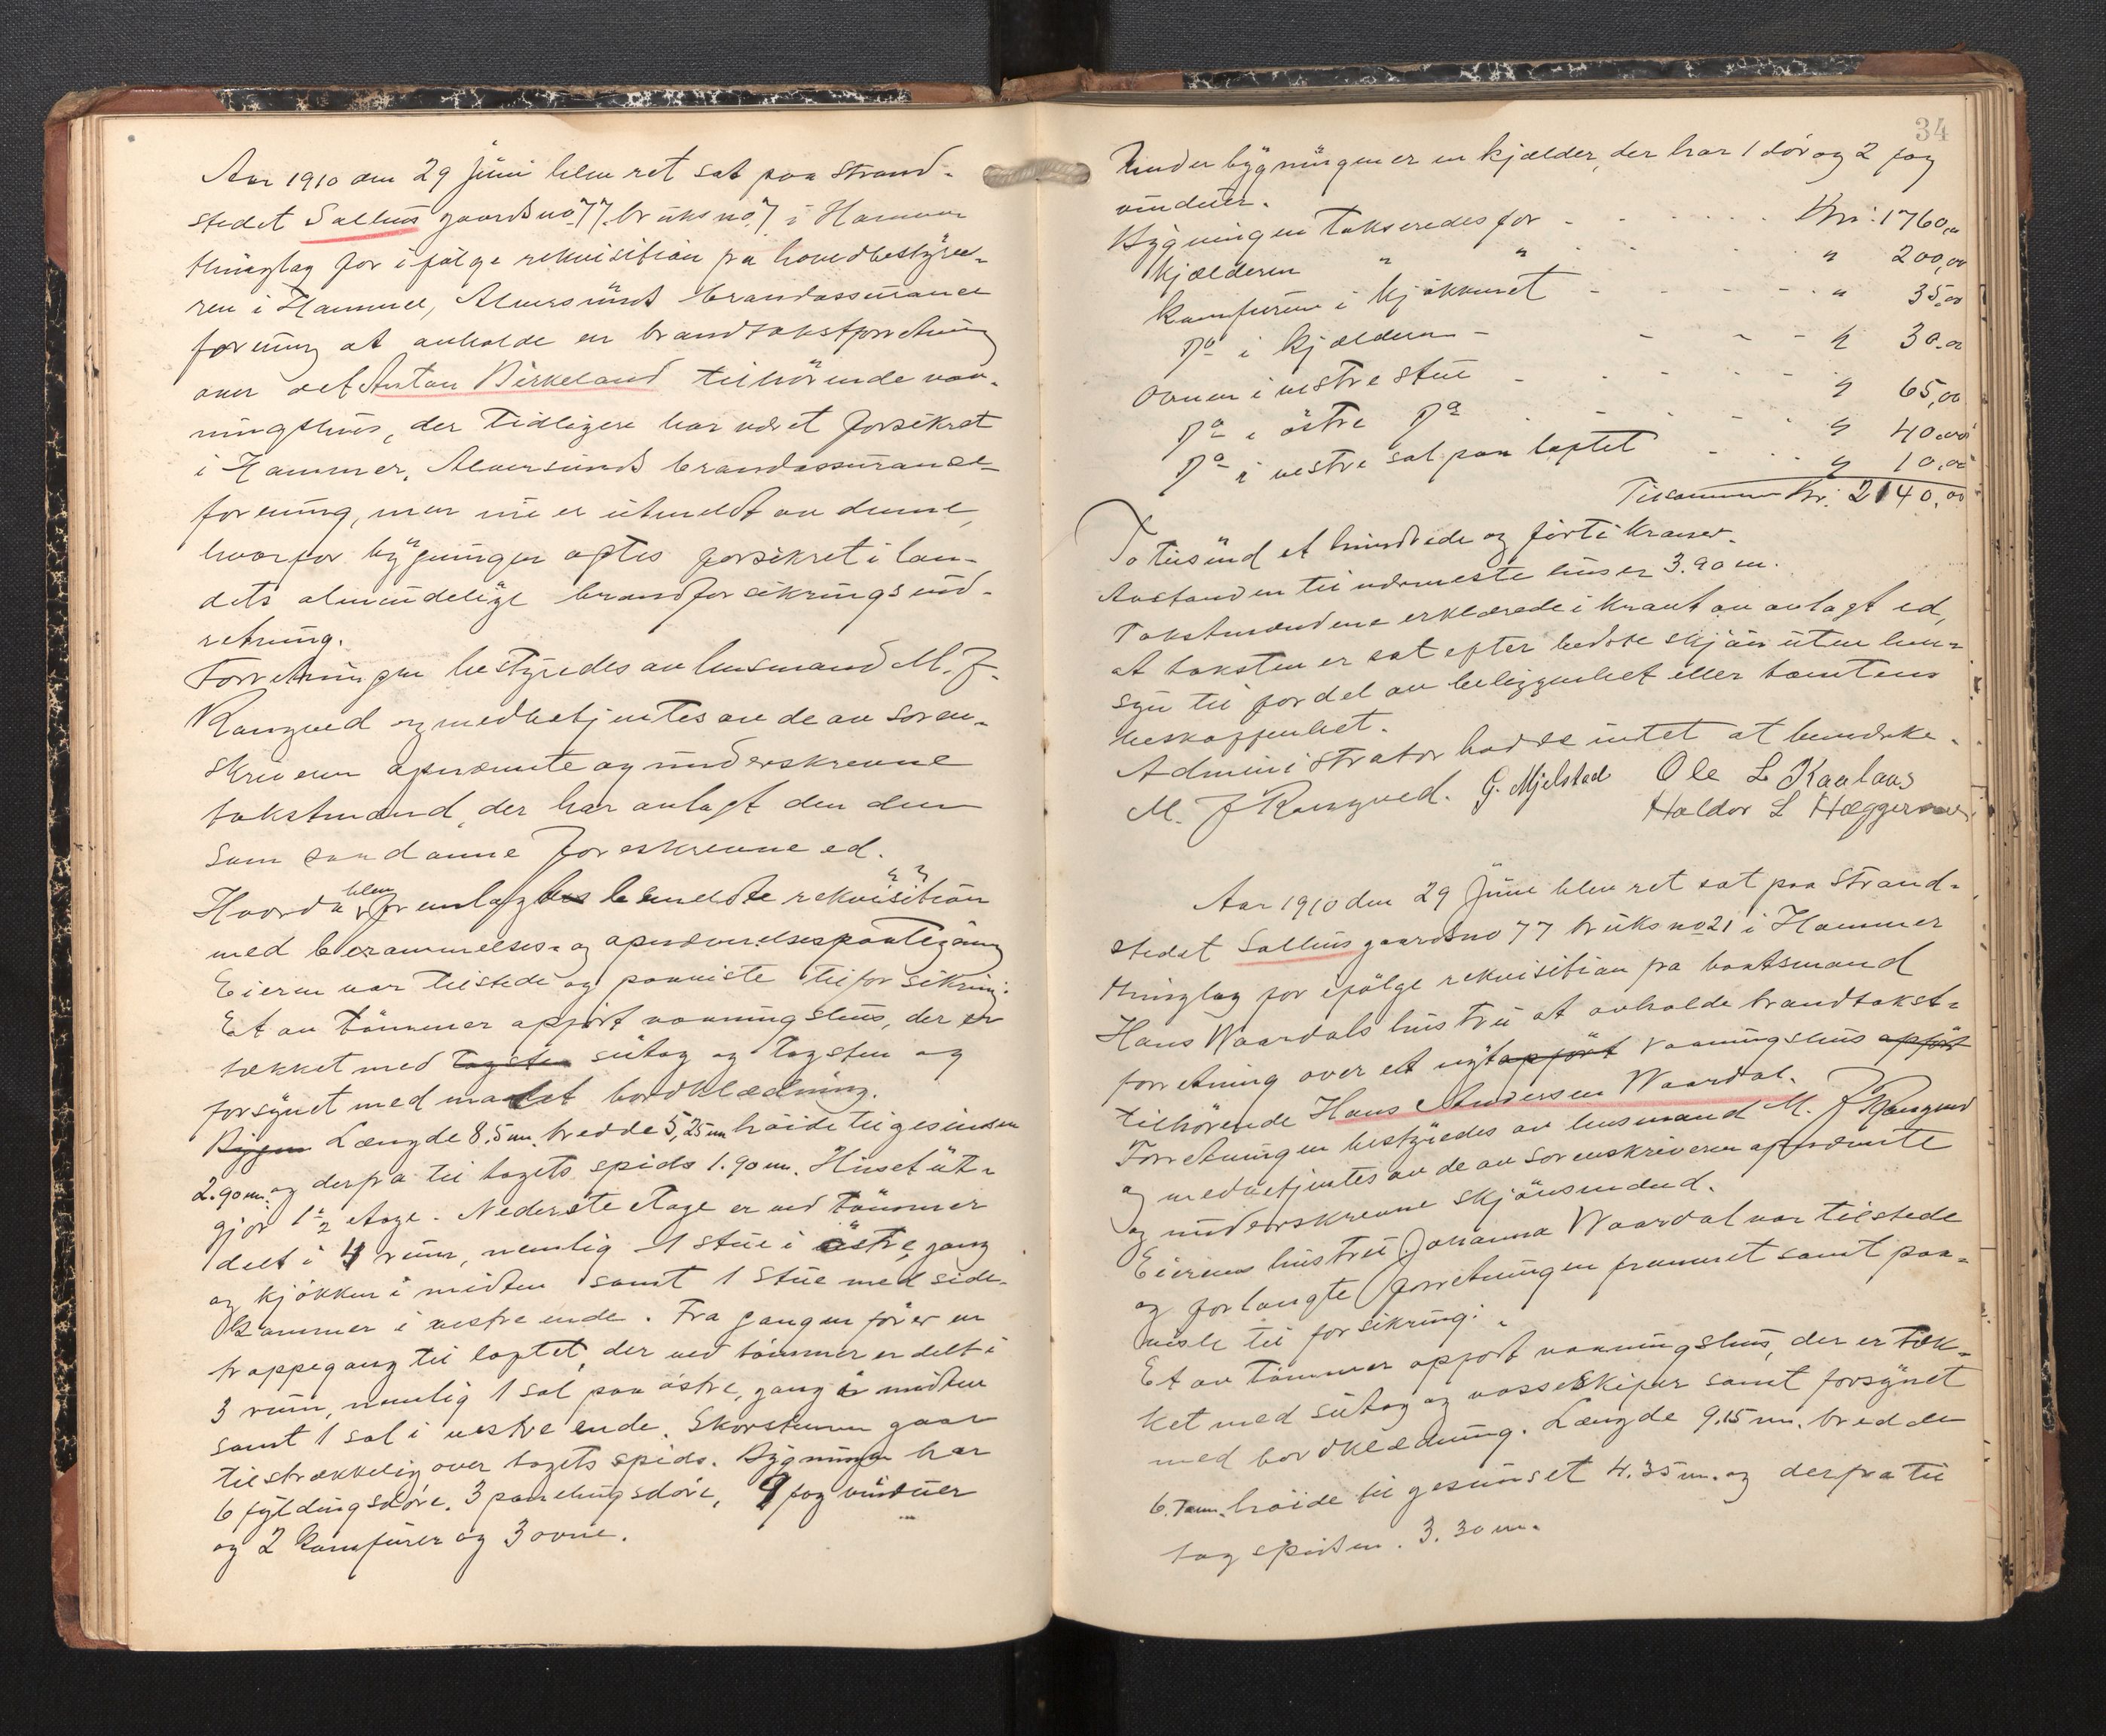 Aar 1910 den 29 Juni blev ret sat paa Strand-
stedet Salhus gaardsno 77. bruksno 7 i Hammer
thinglag for ifølge rekvisition fra hovedbestyre-
ren i Hammer, Alversunds brandassurance
forening at avholde en brandtakstforretning
over det Anton Birkeland tilhörende vaa-
ningshus, der tidligere har været forsikret
i Hammer, Alversunds brandassurance-
forening, men nu er utmeldt av denne,
hvorfor bygningen agtes forsikret i lan-
dets almindelige brandforsikringsind-
retning.
Forretningen bestyredes av lensmand M. J.
Rangved og medbetjentes av de av soren-
skriveren opnævnte og underskrevne
takstmænd, der har avlagt den dem
som saadanne foreskrevne ed.
Hvorda blev fremlagdes bemeldte rekvisition
med berammelses- og opnævnelsespaategning
Eieren var tilstede og paaviste til forsikring:
Et av tömmer opfört vaaningshus, der er
tækket med tagsten sutag og tagsten og
forsynet med malet bordklædning.
Bygn Længde 8.5 m. bredde 5,25 m höide til gesimsen
2.90 m. og derfra til tagets spids 1.90 m. Huset ut-
gjör 1 1/2 etage. Nederste etage er ved tömmer
delt i 4 rum, nemlig 1 stue i östre, gang
og kjökken i midten samt 1 stue med side-
kammer i vestre ende. Fra gangen förer en
trappegang til loftet, der ved tömmer er delt i
3 rum, nemlig 1 sal paa östre, gang i midten
samt 1 sal i vestre ende. Skorstenen gaar
tilstrækkelig over tagets spids. Bygningen har
6 fyldingsdöre, 3 panelingsdöre, 9 fag vinduer
og 2 komfurer og 3 ovne.
34
Under bygningen er en kjælder, der har 1 dör og 2 fag
vinduer.
Bygningen takseredes for - - - - - Kr: 1760,„
Kjælderen „ „ - - - „ 200,00
Komfuren i kjökkenet - - - - - „ 35,00
Do i kjælderen - - - - „ 30.00
Ovnen i vestre stue - - - - - „ 65,00
Do i östre Do - - - - „ 40.00
Do i vestre sal paa loftet - - - „ 10.00
Tilsammen Kr: 2140.00
To tusind et hundrede og förti kroner.
Avstanden til nærmeste hus er 3.90 m.
Takstmændene erklærede i kraft av avlagt ed,
at taksten er sat efter bedste skjön uten hen-
syn til fordel av beliggenhet eller tomtens
beskaffenhet.
Administrator hadde intet at bemerke.
M. J Rangved. G. Mjelstad Ole L Kaalaas
Haldor L Hæggernæs
Aar 1910 den 29 Juni blev ret sat paa Strand-
stedet Salhus gaardsno 77 bruksno 21 i Hammer
thinglag for ifølge rekvisition fra baatsmand
Hans Waardals hustru at avholde brandtakst-
forretning over et nyt opfört vaaningshus opfört
tilhörende Hans Andersen Waardal.
Forretningen bestyredes av lensmand M. J Rangved
og medbetjentes av de av sorenskriveren opnævnte
og underskrevne skjönsmænd.
Eierens hustru Johanna Waardal var tilstede
og forlangte forretningen fremmet samt paa-
viste til forsikring:
Et av tömmer opfört vaaningshus, der er tæk-
ket med sutag og vosseskifer samt forsynet
med bordklædning. Længde 9.15 m. bredde
6.70 m. höide til gesimset 4.35 m. og derfra til
tagspidsen 3.30 m.